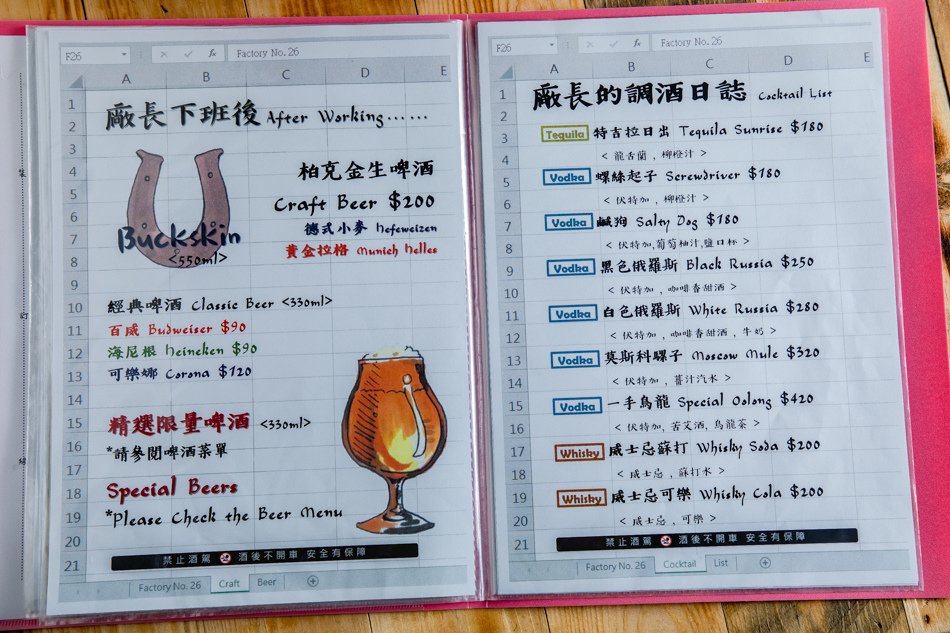 F26
fx
Factory No. 26
A B C D E
1
廠長下班後 After Working......
2
3
4
柏克金生啤酒
5
Craft Beer $200
6
德式小麥 Hefeweizen
7
Buckskin
黃金拉格 Munich Helles
8
<550ml>
9
10
經典啤酒 Classic Beer <330ml>
11
百威 Budweiser $90
12
海尼根 Heineken $90
13
可樂娜 Corona $120
14
15
精選限量啤酒 <330ml>
16
17
*請參閱啤酒菜單
18
Special Beers
19
*Please Check the Beer Menu
20
21
禁止酒駕 酒後不開車 安全有保障
Factory No. 26 Craft Beer
F26
fx
Factory No. 26
A B C D E
1
廠長的調酒日誌 Cocktail List
2
3
Tequila 特吉拉日出 Tequila Sunrise $180
4
< 龍舌蘭 , 柳橙汁 >
5
Vodka 螺絲起子 Screwdriver $180
6
< 伏特加 , 柳橙汁 >
7
Vodka 鹹狗 Salty Dog $180
8
< 伏特加,葡萄柚汁,鹽口杯 >
9
Vodka 黑色俄羅斯 Black Russia $250
10
< 伏特加 , 咖啡香甜酒 >
11
Vodka 白色俄羅斯 White Russia $280
12
< 伏特加 , 咖啡香甜酒 , 牛奶 >
13
Vodka 莫斯科騾子 Moscow Mule $320
14
< 伏特加 , 薑汁汽水 >
15
Vodka 一手烏龍 Special Oolong $420
16
< 伏特加, 苦艾酒, 烏龍茶 >
17
Whisky 威士忌蘇打 Whisky Soda $200
18
< 威士忌 , 蘇打水 >
19
Whisky 威士忌可樂 Whisky Cola $200
20
< 威士忌 , 可樂 >
21
禁止酒駕 酒後不開車 安全有保障
Factory No. 26 Cocktail List
裝
訂
線